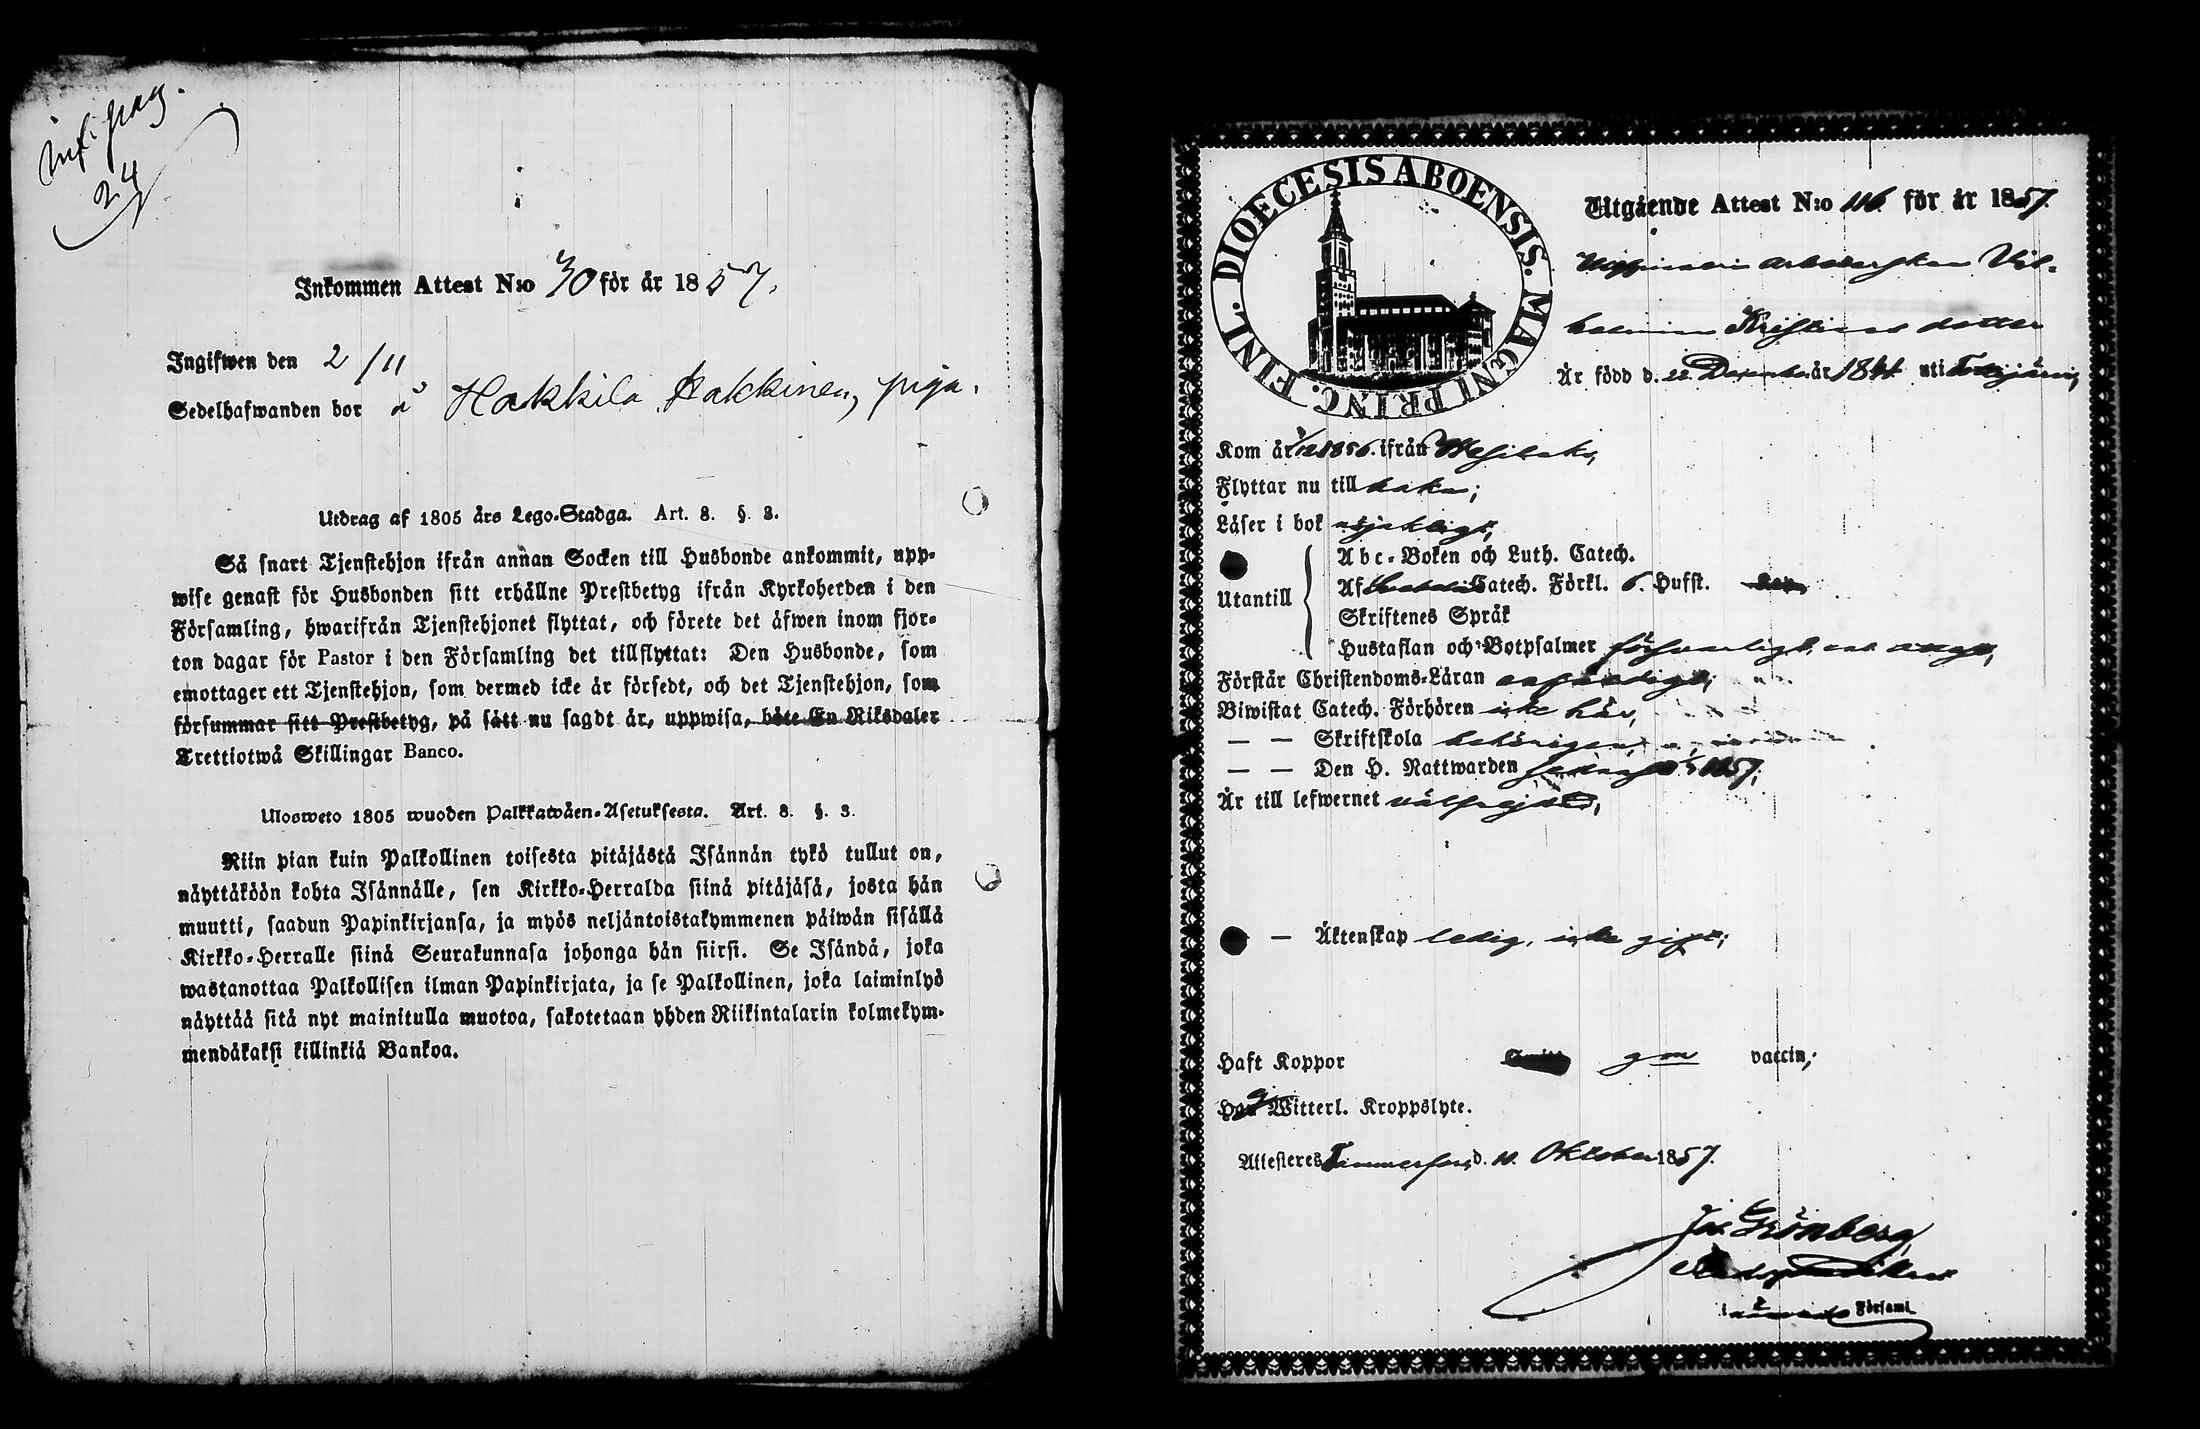 24
Inkommen Attest N:o 70 för år 1857.
Ingifwen den 2/11
Sedelhafwanden bor å Hakkila Hakkinen, piga.
Utdrag af 1805 års Lego-Stadga. Art. 8. §. 3.
Så snart Tjenstehjon ifrån annan Socken till Husbonde ankommit, upp-
wise genast för Husbonden sitt erhållne Prestbetyg ifrån Kyrkoherden i den
Församling, hwarifrån Tjenstehjonet flyttat, och förete det äfwen inom fjor-
ton dagar för Pastor i den Församling det tillflyttat: Den Husbonde, som
emottager ett Tjenstehjon, som dermed icke är försedt, och det Tjenstehjon, som
försummar sitt Prestbetyg, på sätt nu sagdt är, uppwisa, böte En Riksdaler
Trettiotwå Skillingar Banco.
Ulosweto 1805 wuoden Palkkawäen-Asetuksesta. Art. 8. §. 3.
Niin pian kuin Palkollinen toisesta pitäjästä Isännän tykö tullut on,
näyttäköön kohta Isännälle, sen Kirkko-Herralda siinä pitäjäsä, josta hän
muutti, saadun Papinkirjansa, ja myös neljäntoistakymmenen päiwän sisällä
Kirkko-Herralle siinä Seurakunnasa johonga hän siirsi. Se Isändä, joka
wastanottaa Palkollisen ilman Papinkirjata, ja se Palkollinen, joka laiminlyö
näyttää sitä nyt mainitulla muotoa, sakotetaan yhden Riikintalarin kolmekym-
mendäkaksi killinkiä Bankoa.
FINL. DIOECESIS ABOENSIS. MAGNI PRINC.
Utgående Attest N:o 116 för år 1857.
Wil-
helmina Kristina dotter
Är född d. 22 December år 1841 uti
Kom år 1856. ifrån Wesilaks,
Flyttar nu till baka;
Läser i bok
Abc-Boken och Luth. Catech.
Utantill
Af Catech. Förkl. 6. Hufst.
Skriftenes Språk
Hustaflan och Botpsalmer försvarligt,
Förstår Christendoms-Läran
Biwistat Catech. Förhören icke här,
— — Skriftskola behörigen,
— — Den H. Nattwarden 1857;
Är till lefwernet välfrejdad,
— Äktenskap ledig, icke gift;
Haft Koppor gm vaccin;
Witterl. Kroppslyte.
Attesteres Tammerfors d. 10. Oktober 1857.
Jos Grönberg
i Församl.